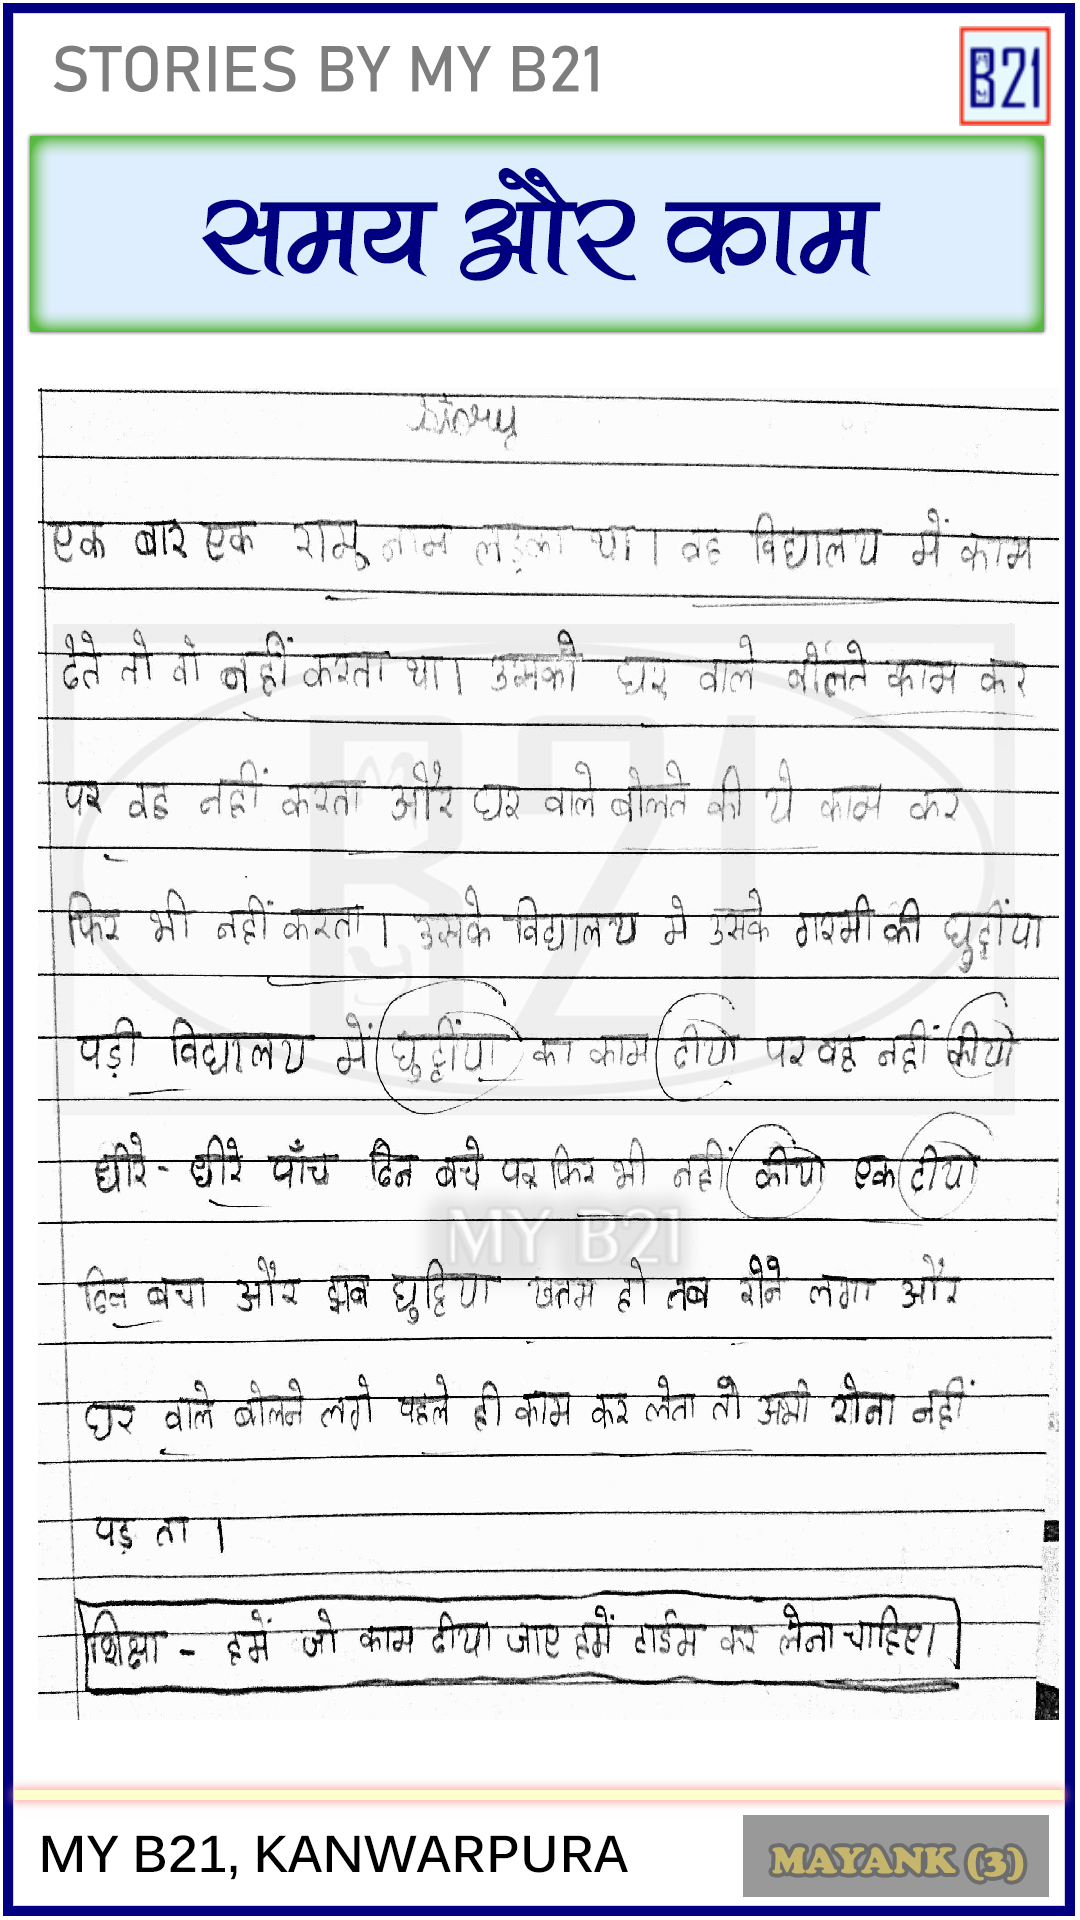 STORIES BY MY B21
B21
समय और काम
Story
एक बार एक रामू नाम लड़का था। वह विद्यालय में काम
देते तो वो नहीं करता था। उसको घर वाले बोलते काम कर
पर वह नहीं करता और घर वाले बोलते की ये काम कर
फिर भी नहीं करता। उसके विद्यालय मे उसके गरमी की छुट्टींया
पड़ी विद्यालय में छुट्टींया का काम दीयो पर वह नहीं कीयो
धीरे - धीरे पाँच दिन बचे पर फिर भी नहीं कीयो एक दीयो
दिन बचा और झब छुट्टिया खतम हो तब रोने लगा और
घर वाले बोलने लगे पहले ही काम कर लेता तो अभी रोना नहीं
पड़ ता।
शिक्षा - हमें जो काम दीया जाए हमें टाईम कर लेना चाहिए।
MY B21
MY B21, KANWARPURA
MAYANK (3)